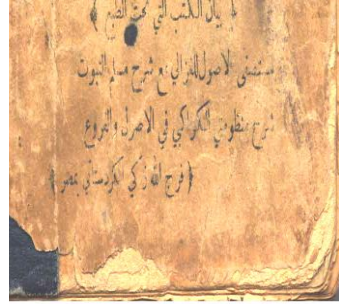 ﴿ بيان الكتب التي تحت الطبع ﴾
مستصفى الاصول للغزالي مع شرح مسلم الثبوت
شرح منظومتي الكواكبي في الاصول والفروع
﴿ فرج الله زكي الكردستاني بمصر ﴾